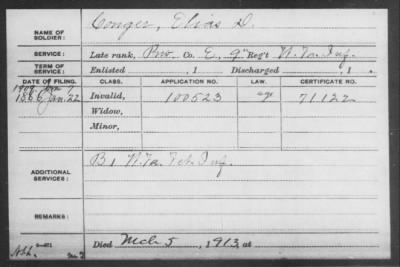 NAME OF SOLDIER: Conger, Elias D.
SERVICE: Late rank, Priv. Co. E, 9" Reg't W. Va. Inf.
TERM OF SERVICE: Enlisted , 1 Discharged , 1
DATE OF FILING. CLASS. APPLICATION NO. LAW. CERTIFICATE NO.
1866 Jan. 22 Invalid, 100523 71122
Widow,
Minor,
ADDITIONAL SERVICES: B, 1 W. Va. Vet. Inf.
REMARKS:
Died Mch 5, 1913, at